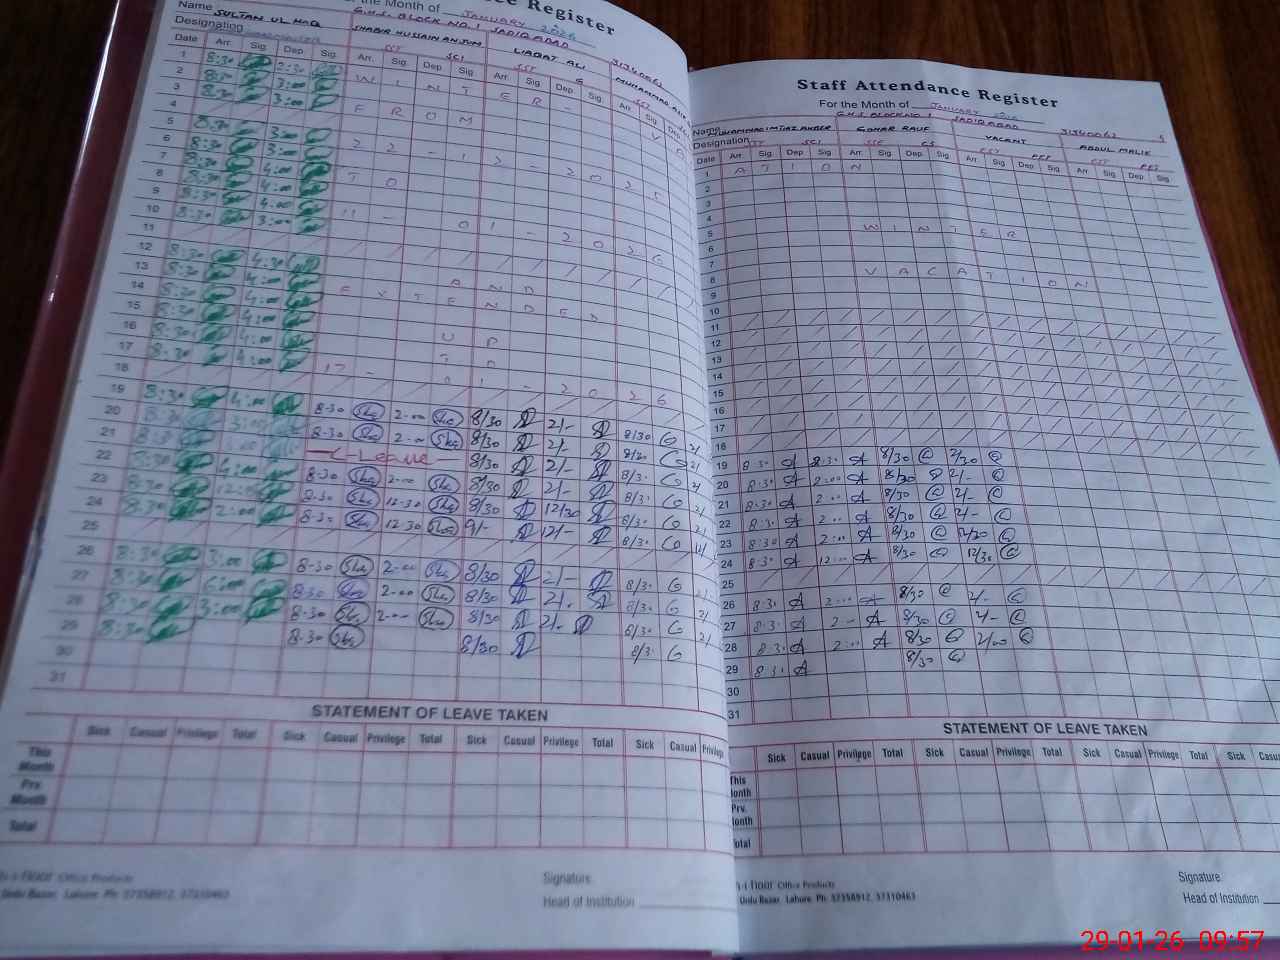 ce Register
the Month of JANUARY 2026
G.H.S. BLOCK NO. 1 SADIQABAD 31340063
Name SULTAN UL HAQ SHABIR HUSSAIN ANJUM LIAQAT ALI
Designation SST SCI SST
Date Arr. Sig. Dep. Sig. Arr. Sig. Dep Sig. Arr. Sig Dep Sig. Arr. Sig Dep
1 8:30 2:30 W I N T E R - V
2 8:30 3:00
3 8:30 3:00 F R O M
4
5 8:30 3:00 22 - 12 - 2025
6 8:30 3:00
7 8:30 4:00 T O
8 8:30 4:00
9 8:30 4:00 11 - 01 - 2026
10 8:30 3:00
11
12 8:30 4:30 A N D
13 8:30 4:00 E X T E N D E D
14 8:30 4:00
15 8:30 4:00 U P
16 8:30 4:00 T O
17 8:30 4:00 17 - 01 - 2026
18
19 8:30 4:00 8-30 Sha 2-00 Sha 8/30 2/- 8/30 G 2/
20 8:30 3:00 8-30 Sha 2-00 Sha 8/30 2/- 8/30 G 2/
21 C-Leave 8/30 2/- 8/30 G 2/
22 8:30 4:00 8-30 Sha 2-00 Sha 8/30 2/- 8/30 G 2/
23 8:30 12:00 8-30 Sha 12-30 Sha 8/30 12/30 8/30 G
24 8:30 2:00 8-30 Sha 12-30 Sha 9/- 12/- 8/30 G
25
26 8:30 3:00 8-30 Sha 2-00 Sha 8/30 2/- 8/30 G 2/
27 8:30 8-30 Sha 2-00 Sha 8/30 2/- 8/30 G 2/
28 8:30 3:00 8-30 Sha 2-00 Sha 8/30 2/- 8/30 G 2/
29 8:30 8-30 Sha 8/30 8/30 G
30
31
STATEMENT OF LEAVE TAKEN
Sick Casual Privilege Total Sick Casual Privilege Total Sick Casual Privilege Total Sick Casual Privilege
This Month
Prv. Month
Total
Office Products
Urdu Bazar, Lahore. Ph: 37358912, 37310463
Signature
Head of Institution
Staff Attendance Register
For the Month of JANUARY 2026
G.H.S. BLOCK NO. 1 SADIQABAD 31340063
Name MUHAMMAD IMTIAZ AKBER GOHAR RAUF VACANT ABDUL MALIK
Designation SST SCI SSE CS EST PET
Date Arr. Sig. Dep Sig. Arr. Sig. Dep Sig. Arr. Sig. Dep Sig. Arr. Sig. Dep Sig.
1 A T I O N
2
3
4
5 W I N T E R
6
7
8 V A C A T I O N
9
10
11
12
13
14
15
16
17
18
19 8:30 A 2:30 A 8/30 G 2/30 G
20 8:30 A 2:00 A 8/30 G 2/- G
21 8:30 A 2:00 A 8/30 G 2/- G
22 8:30 A 2:00 A 8/30 G 2/- G
23 8:30 A 2:00 A 8/30 G G
24 8:30 A 12:00 A 8/30 G 12/30 G
25
26 8:30 A 2:00 A 8/30 G 2/- G
27 8:30 A 2:- A 8/30 G 2/- G
28 8:30 A 2:00 A 8/30 G 2/00 G
29 8:30 A 8/30 G
30
31
STATEMENT OF LEAVE TAKEN
Sick Casual Privilege Total Sick Casual Privilege Total Sick Casual Privilege Total Sick
This Month
Prv. Month
Total
Office Products
Urdu Bazar, Lahore. Ph: 37358912, 37310463
Signature
Head of Institution
29-01-26 09:57